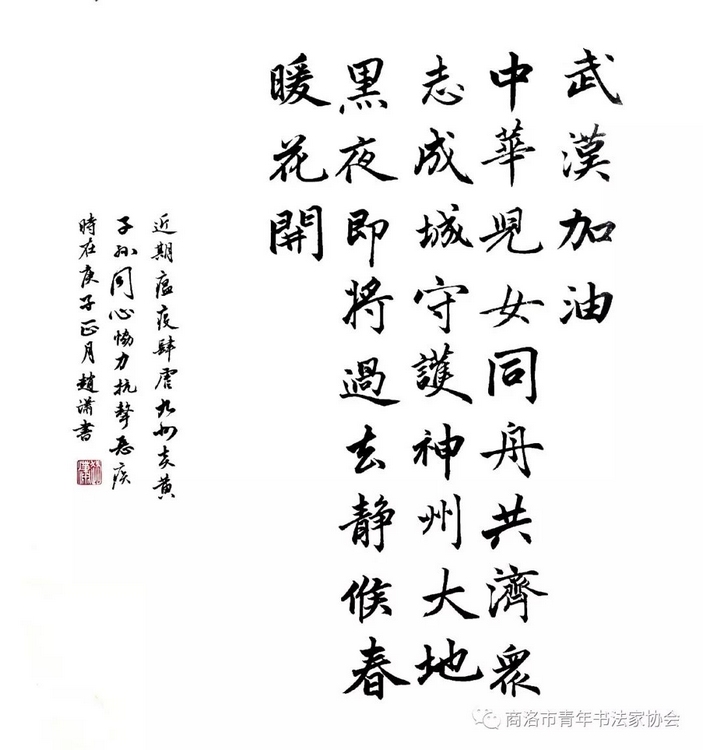 武漢加油
中華兒女同舟共濟衆
志成城守護神州大地
黑夜即將過去静候春
暖花開
近期瘟疫肆虐九州炎黄
子孙同心恊力抗擊惡疾
時在庚子正月趙瀟書
商洛市青年书法家协会